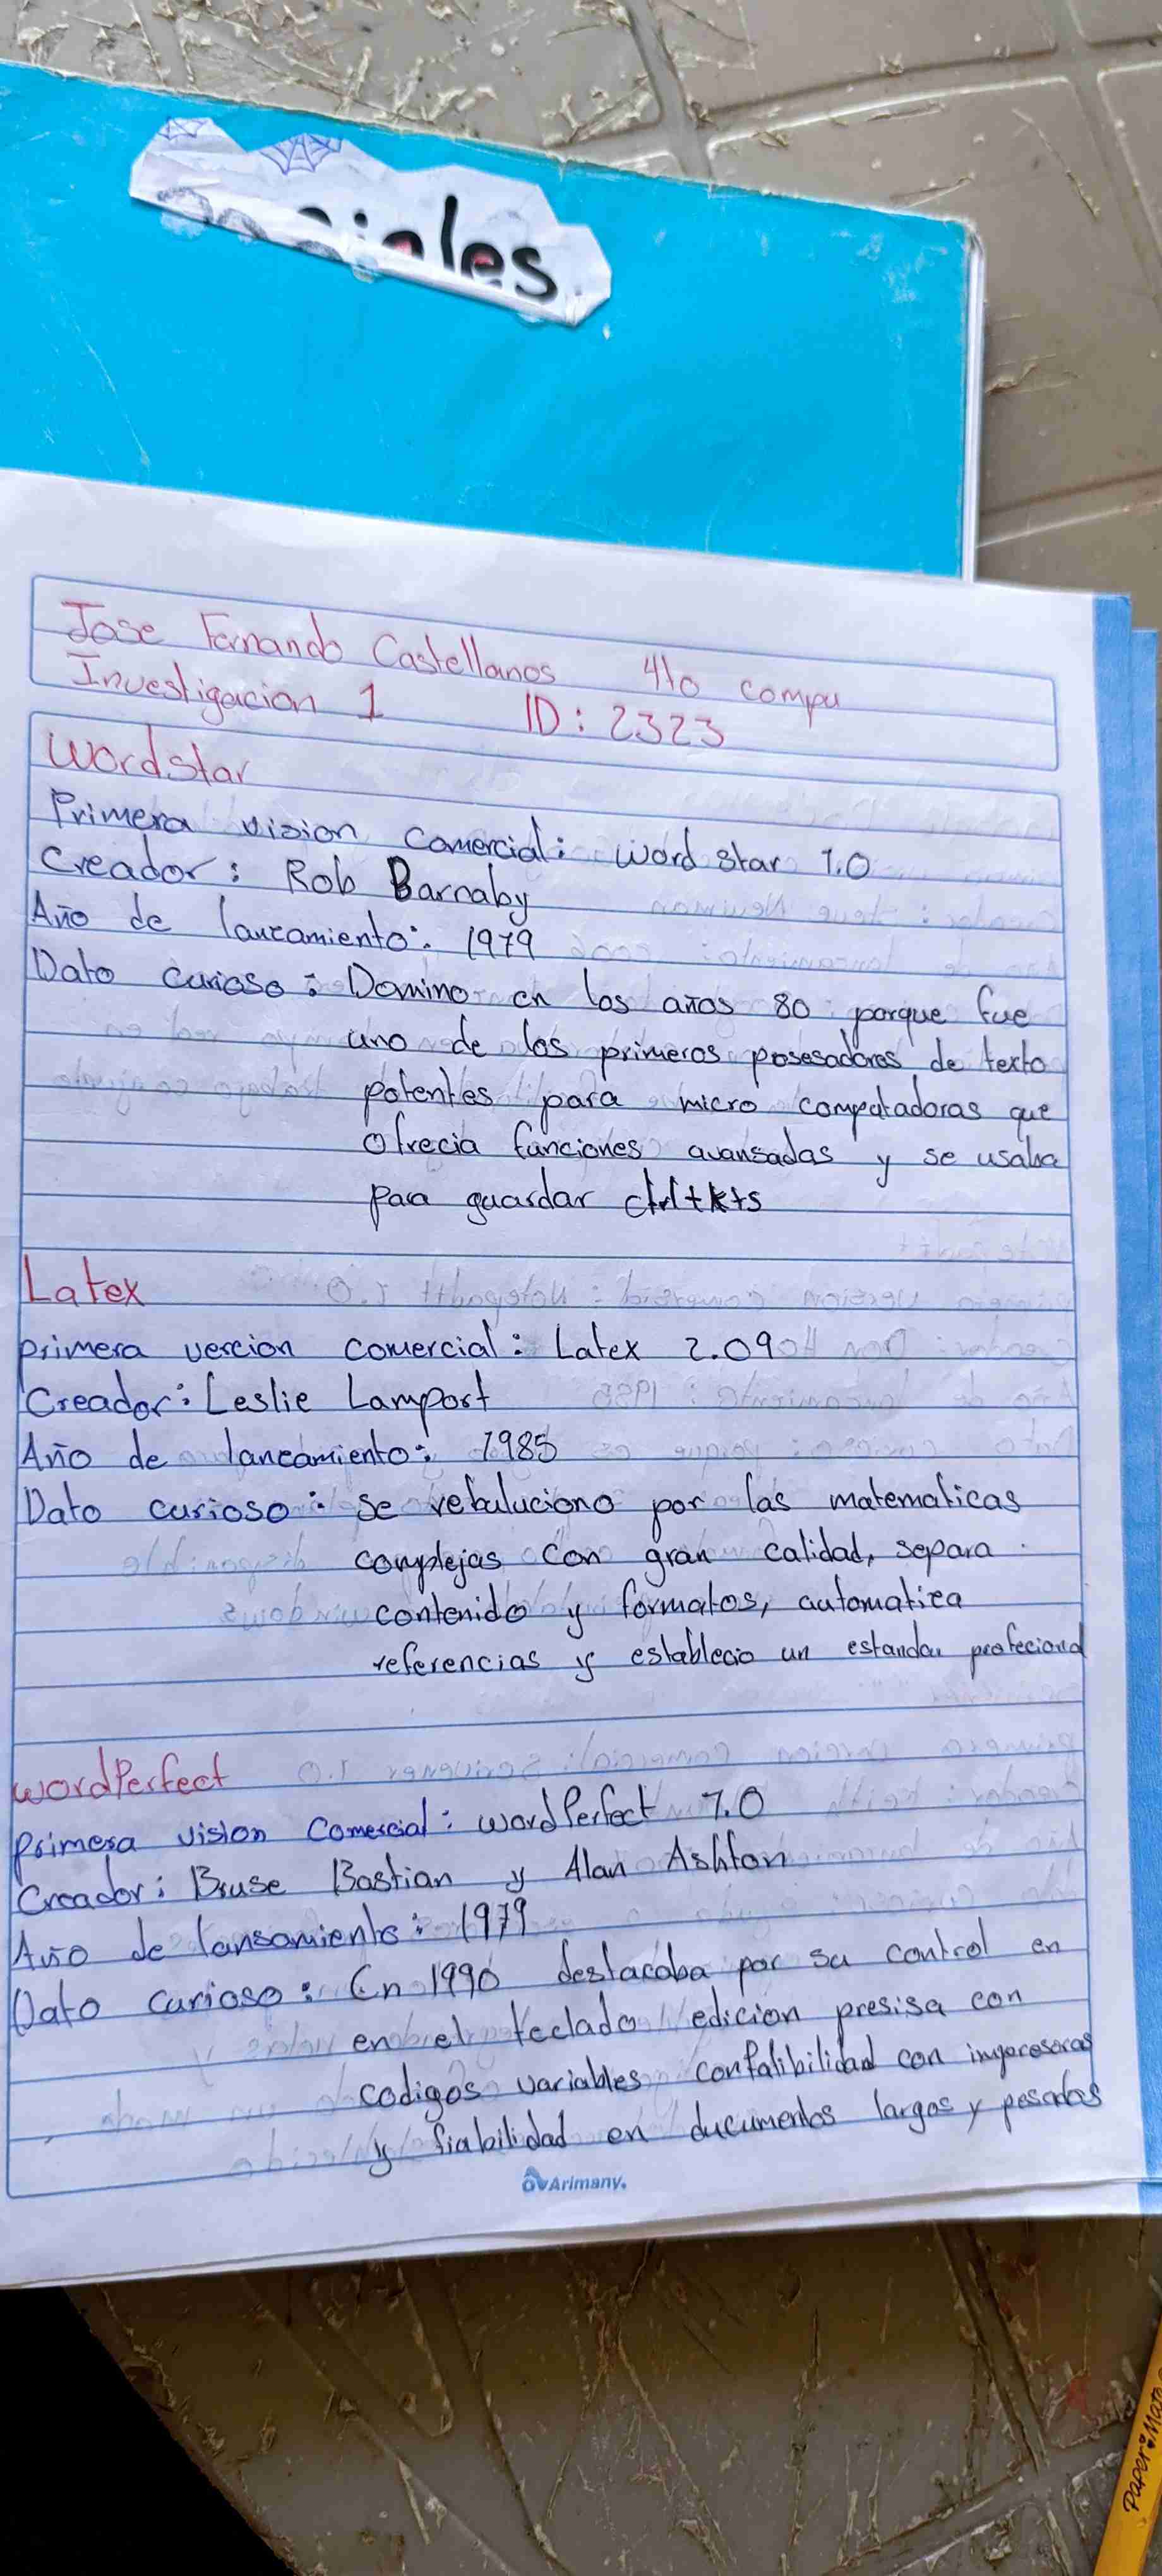 ciales
Jose Fernando Castellanos 4to compu
Investigacion 1 ID: 2323
Wordstar
Primera vision comercial: Word star 1.0
Creador: Rob Barnaby
Año de lanzamiento: 1979
Dato curioso: Domino en los años 80 porque fue
uno de los primeros posesadores de texto
potentes para micro computadoras que
ofrecia funciones avansadas y se usaba
para guardar ctrl+k+s
Latex
primera vercion comercial: Latex 2.09
Creador: Leslie Lamport
Año de lanzamiento: 1985
Dato curioso: se rebuluciono por las matematicas
complejas con gran calidad, separa
contenido y formatos, automatiza
referencias y establecio un estandar profecional
WordPerfect
Primera vision Comercial: WordPerfect 1.0
Creador: Bruse Bastian y Alan Ashton
Año de lansamiento: 1979
Dato curioso: En 1990 destacaba por su control en
en el teclado edicion presisa con
codigos variables confatibilidad con imporesoras
y fiabilidad en ducumentos largos y pesados
Arimany.
Paper Mate